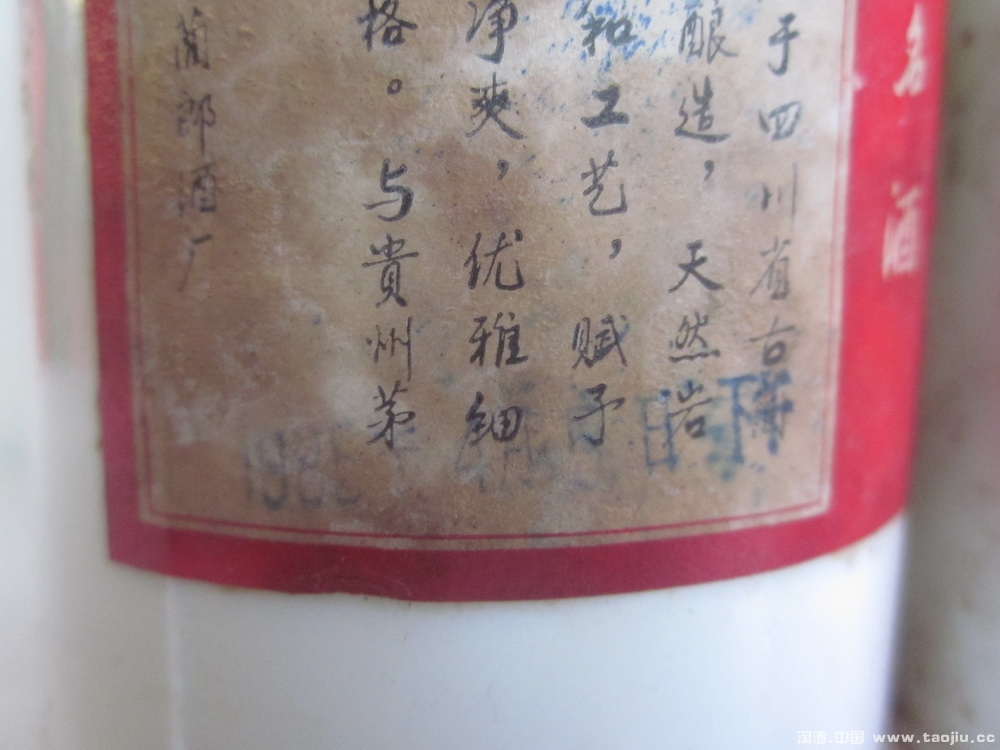 名酒
于四川省古蔺
酿造，天然岩
和工艺，赋予
净爽，优雅细
格。与贵州茅
蔺郎酒厂
淘酒.中国 www.taojiu.cc